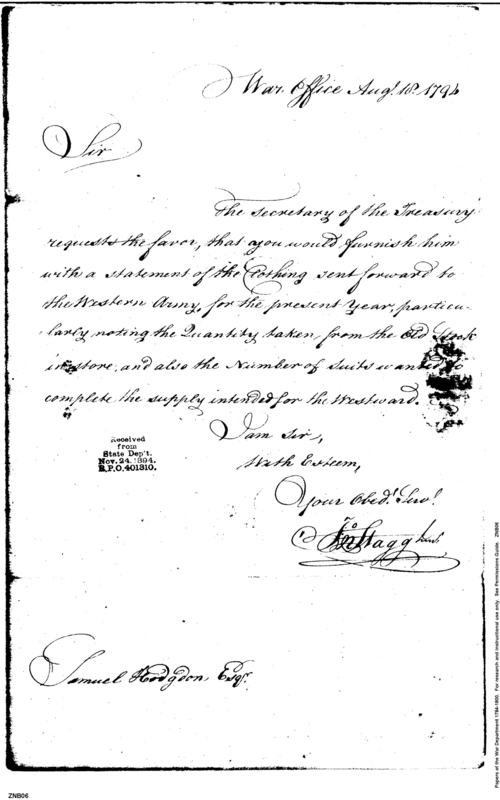 War Office Augt. 18. 1794
Sir
The Secretary of the Treasury
requests the favor, that you would furnish him
with a statement of the Clothing sent forward to
the Western Army, for the present Year, particu-
larly noting the Quantity taken from the Old Stock
in store, and also the Number of Suits wanted to
complete the supply intended for the Westward.
I am Sir,
With Esteem,
Your Obedt. Servt.
Jno Stagg Junr.
Received
from
State Dep't.
Nov. 24. 1894.
R.P.O. 401310.
Samuel Hodgdon, Esqr.
ZNB06
Papers of the War Department 1784-1800. For research and instructional use only. See Permissions Guide. ZNB06